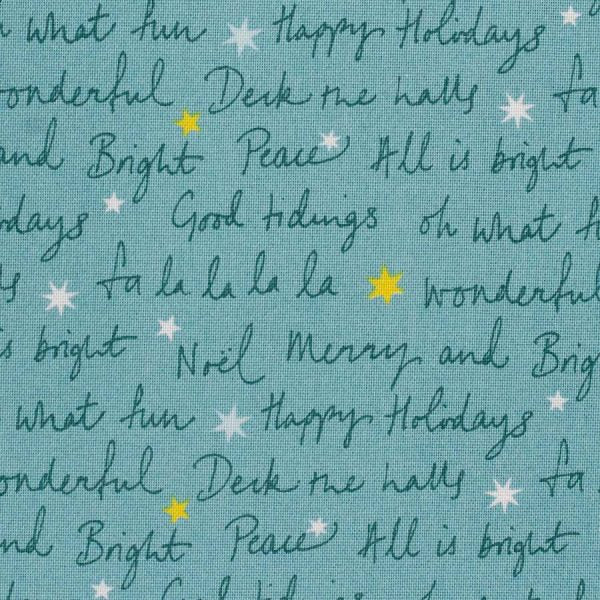 what fun Happy Holidays
onderful Deck the halls fa
and Bright Peace All is bright
days Good tidings oh what f
fa la la la la wonderful
is bright Noël Merry and Brig
what fun Happy Holidays
onderful Deck the halls fa
nd Bright Peace All is bright